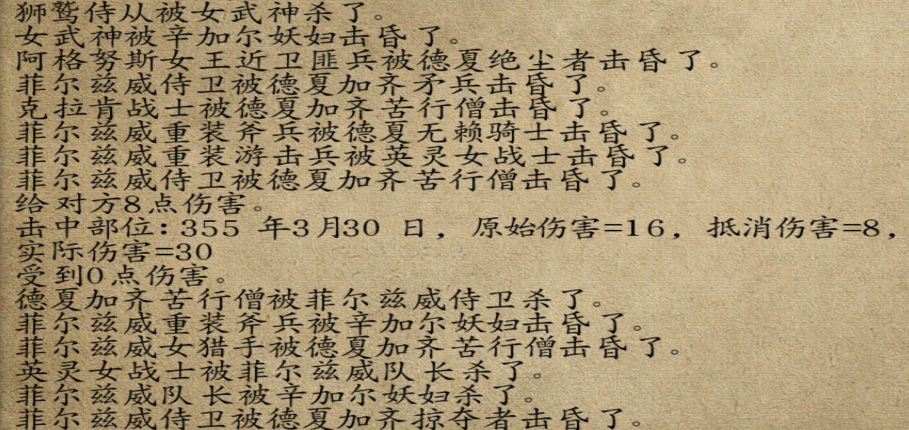 狮鹫侍从被女武神杀了。
女武神被辛加尔妖妇击昏了。
阿格努斯女王近卫匪兵被德夏绝尘者击昏了。
菲尔兹威侍卫被德夏加齐矛兵击昏了。
克拉肯战士被德夏加齐苦行僧击昏了。
菲尔兹威重装斧兵被德夏无赖骑士击昏了。
菲尔兹威重装游击兵被英灵女战士击昏了。
菲尔兹威侍卫被德夏加齐苦行僧击昏了。
给对方8点伤害。
击中部位：355 年3月30 日, 原始伤害=16, 抵消伤害=8,
实际伤害=30
受到0点伤害。
德夏加齐苦行僧被菲尔兹威侍卫杀了。
菲尔兹威重装斧兵被辛加尔妖妇击昏了。
菲尔兹威女猎手被德夏加齐苦行僧击昏了。
英灵女战士被菲尔兹威队长杀了。
菲尔兹威队长被辛加尔妖妇杀了。
菲尔兹威侍卫被德夏加齐掠夺者击昏了。